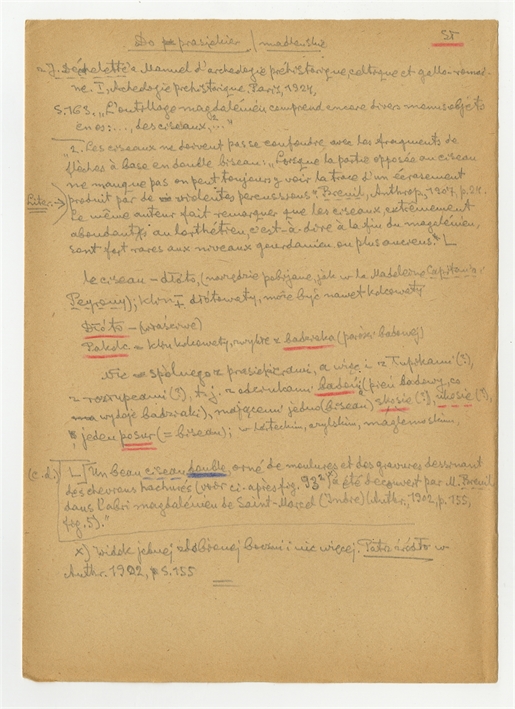 Do prasiekier / madleńskie
ST
J. Déchelette Manuel d'archeologie préhistorique, celtique et gallo-romai-
ne. I, Archeologie préhistorique. Paris, 1924,
S. 163, „L'outillage magdalénien comprend encore divers menus objets
en os: ..., des ciseaux,² ..."
"2. Les ciseaux ne doivent pas se confondre avec les fragments de
flèches à base en double biseau: „Lorsque la partie opposée au ciseau
ne manque pas on peut toujours y voir la trace d'un écrasement
produit par de violentes percussions". Breuil, Anthrop, 1907, p. 24.
Le même auteur fait remarquer que les ciseaux, extrêmement
abondants au lorthétien, c'est-à-dire à la fin du magdalénien,
sont fort rares aux niveaux gourdanien ou plus anciens." L
le ciseau – dłóto, (narzędzie pobijane, jak w le Madeleine Capitana,
Peyrony); klin dłótowaty, może być nawet
Dłóto –
= klin kołkowaty, zwykle z (poroża
Nie spólnego z prasiekierami, a więc i z (?),
z (?), t. j. z
ma wydaje), mającemi jedno (biseau) skosie (?), ukosie (?),
jeden posur (= biseau);
(c. d.) L Un beau ciseau double, orné de moulures et des gravures dessinant
des chevrons hachurés (voir ci-après fig. 93²) a été découvert par M. Breuil
dans l'abri magdalénien de Saint-Marcel (Indre) (Anthr., 1902, p. 155,
fig. 5)."
x) Widok jednej zdobionej boczni i nic więcej. Patrz źródło w
Anthr. 1902, S. 155